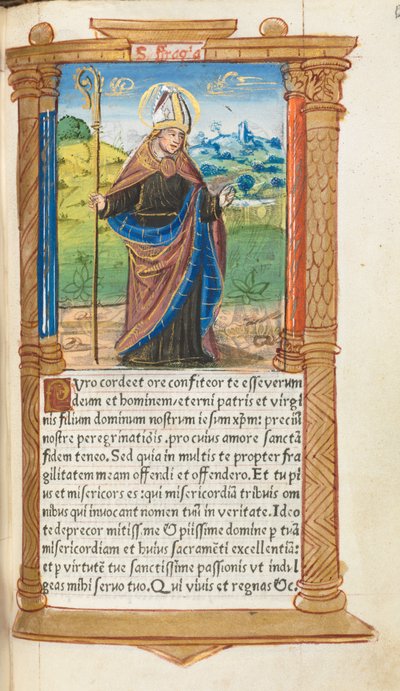 S fragia
Puro corde et ore confiteor te esse verum
deum et hominem/eterni patris et virgi
nis filium dominum nostrum iesum xp̄m: preciū
nostre peregrinatiōis, pro cuius amore sanctā
fidem teneo. Sed quia in multis te propter fra
gilitatem meam offendi et offendero. Et tu pi
us et misericors es: qui misericordiā tribuis om
nibus qui inuocant nomen tuū in veritate. Ideo
te deprecor mitissime O piissime domine p̱ tuā
misericordiam et huius sacramēti excellentiā:
et p̱ virtutē tue sanctissime passionis vt indul
geas mihi seruo tuo. Qui viuis et regnas &c.